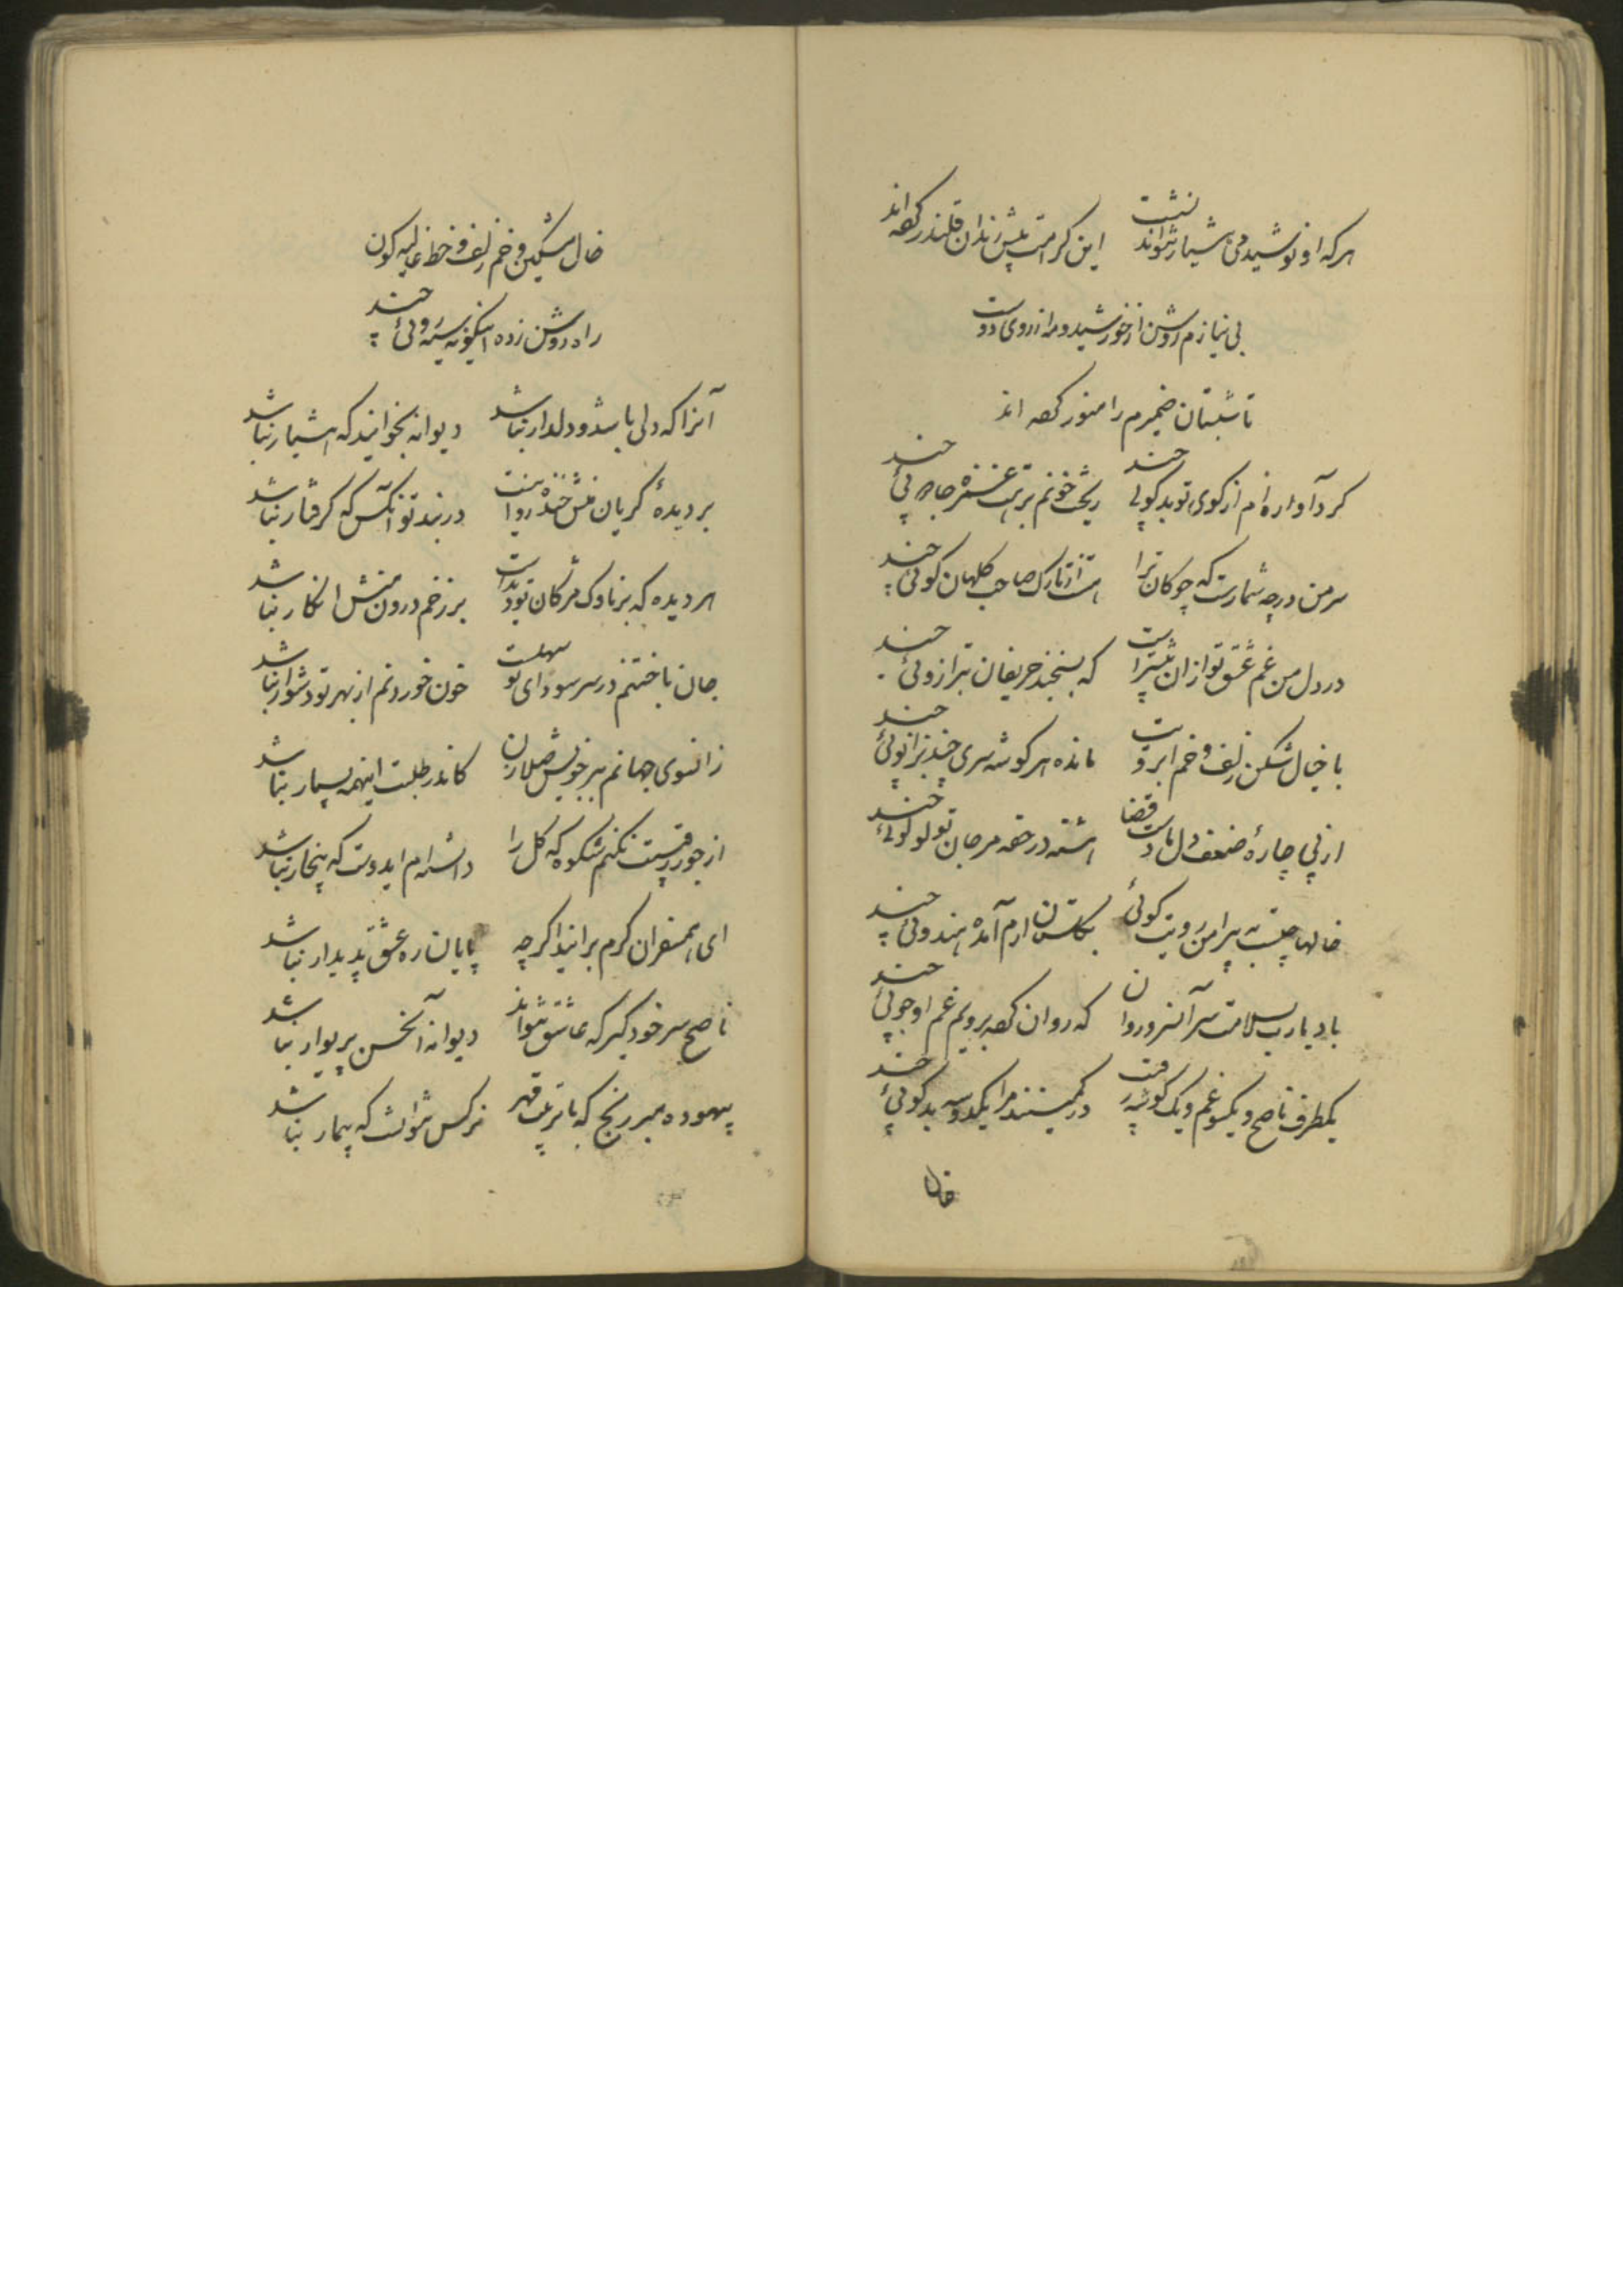 هرکه او نوشید می هشیار نتواند نشست این کرامت پیش رندان قلندر کرده اند
بی نیازم روشن از خورشید و مه از روی دوست
تا شبستان ضمیرم را منور کرده اند
کرد آواره ام از کوی تو بدکوئی چند ریخت خونم بر بت عشوه جادوئی چند
سر من در چه شمارست که چوکان ترا هست از تارک صاحب کلهان کوئی چند
در دل من غم عشق تو از ان بیشتر است که بسنجند حریفان بترازوئی چند
با خیال شکن زلف و خم ابرویت مانده هر کوشه سری چند بزانوئی چند
از پی چاره ضعف دل ماست قضا هشته در حقه مرجان تو لولوئی چند
خالها چیست به پیرامن رویت کوئی بکلستان ارم آمده هندوئی چند
باد یارب بسلامت سر آنسرو روان که روان کرده برویم غم او جوئی چند
یکطرف ناصح و یکسو غم و یک کوشه رقیب در کمینند مرا یکدوسه بدکوئی چند
خال
خال مشکین و خم زلف و خط غالیه کون
راه روشن زده اینکونه سیه روئی چند
آنرا که دلی باشد و دلدار نباشد دیوانه بخوانید که هشیار نباشد
بر دیده کریان منش خنده روا نیست در بند تو آنکس که کرفتار نباشد
هر دیده که بر ناوک مژکان تو بداست بر زخم درون منش انکار نباشد
جان باختنم در سر سودای تو سهلست خون خوردنم از بهر تو دشوار نباشد
زانسوی جهانم بر خویش صلا زن کاندر طلبت اینهمه بسیار نباشد
از جور رقیبت نکنم شکوه که کل را دانسته ام ایدوست که بیخار نباشد
ای همسفران کرم برانید اکرچه پایان ره عشق پدیدار نباشد
ناصح سر خود کیر که عاشق نتواند دیوانه آنحسن پریوار نباشد
بیهوده مبر رنج که با تربیت قهر نرکس نتوانست که بیمار نباشد